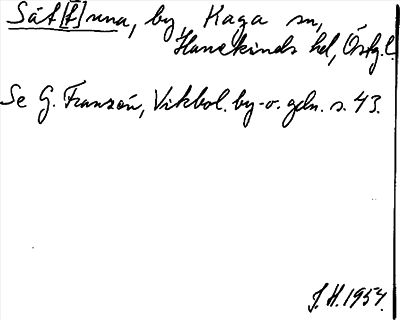 Sät[t]una, by Kaga sn,
Hanekinds hd, Östg.l.
Se G. Franzén, Vikbol. by- o. gdn. s. 43.
J. H. 1954.